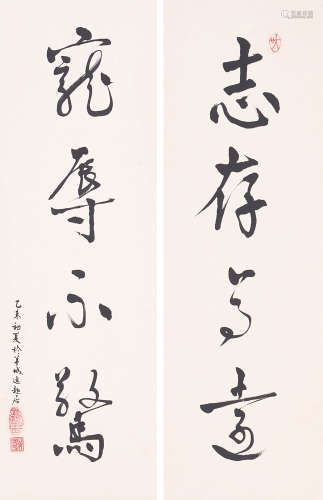 志存高远
宠辱不驚
乙未初夏於羊城